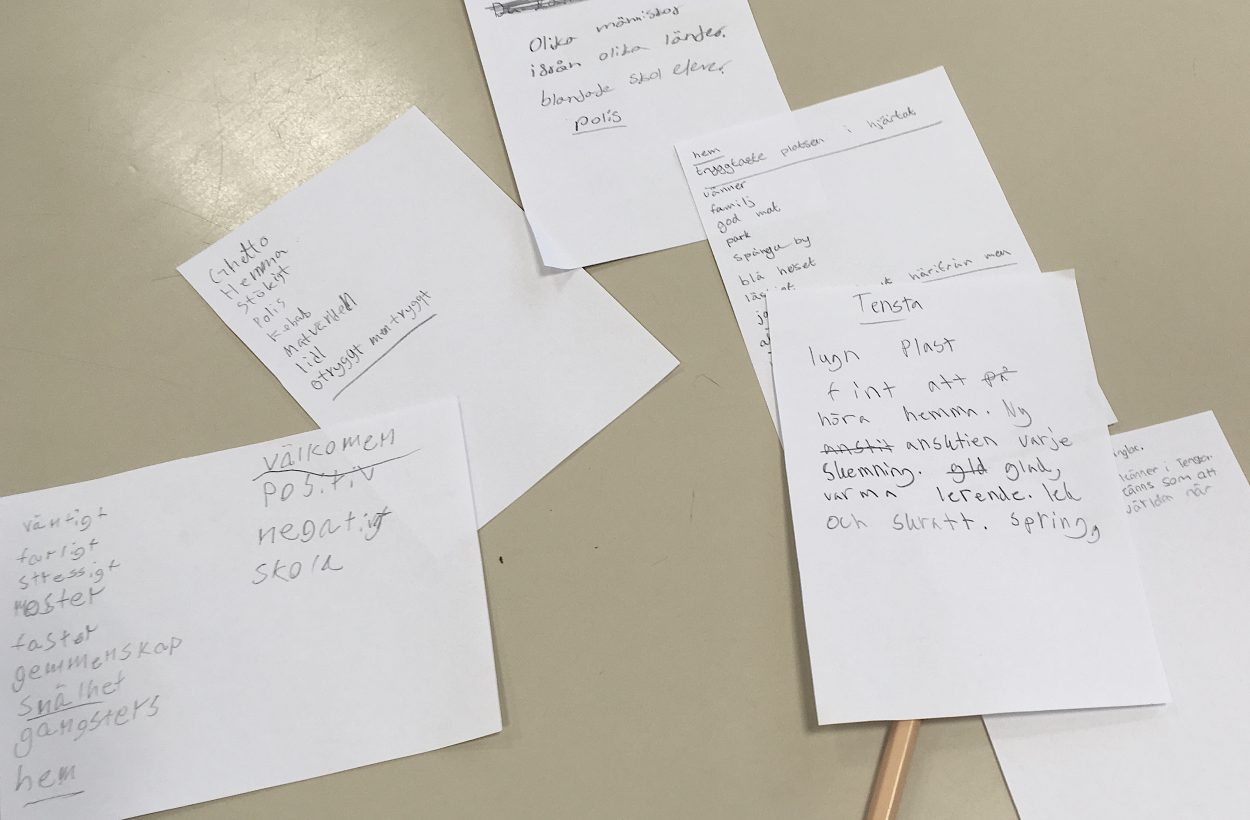 Olika människor
ifrån olika länder.
blandade skol elever.
polis
hem
tryggtaste platsen i hjärtat
vänner
familj
god mat
park
spånga by
blå huset
härifrån men
Ghetto
Hemma
Stökigt
Polis
Kebab
Matvärlden
lidl
otryggt men tryggt
Tensta
lugn Plast
fint att på
höra hemma. Ny
anstit ansikten varje
skemning. gld glad,
varma leende. lek
och skratt. spring,
känner i Tensta.
känns som att
världen när
välkomen
positiv
negativt
skola
väntigt
farligt
stressigt
moster
faster
gemmenskap
snälhet
gangsters
hem